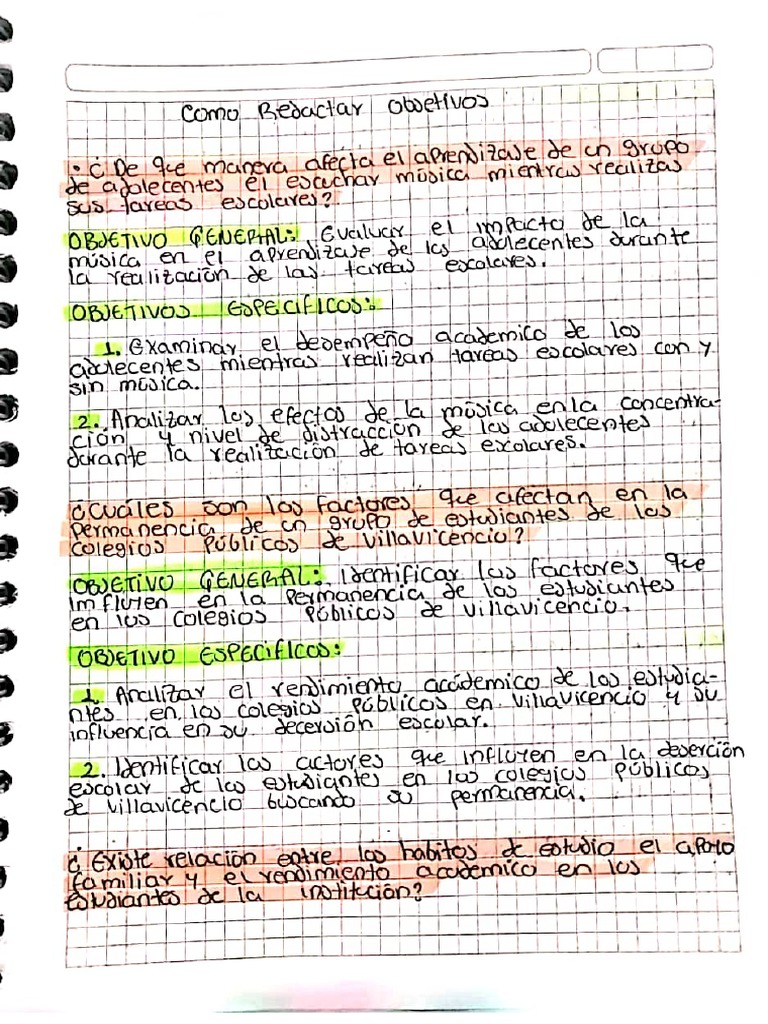 Como Redactar objetivos
• ¿De que manera afecta el aprendizaje de un grupo
de adolecentes el escuchar música mientras realizas
sus tareas escolares?
OBJETIVO GENERAL: Evaluar el impacto de la
música en el aprendizaje de los adolecentes durante
la realización de las tareas escolares.
OBJETIVOS ESPECIFICOS:
1. Examinar el desempeño academico de los
adolecentes mientras realizan tareas escolares con y
sin música.
2. Analizar los efectos de la música en la concentra-
ción y nivel de distracción de los adolecentes
durante la realización de tareas escolares.
¿Cuáles son los factores que afectan en la
permanencia de un grupo de estudiantes de los
colegios públicos de villavicencio?
OBJETIVO GENERAL: Identificar los factores que
imfluyen en la permanencia de los estudiantes
en los colegios públicos de villavicencio.
OBJETIVO ESPECIFICOS:
1. Analizar el rendimiento académico de los estudia-
ntes en los colegios públicos en villavicencio y su
influencia en su decersión escolar.
2. Identificar los actores que influyen en la deserción
escolar de los estudiantes en los colegios públicos
de villavicencio buscando su permanencia.
¿Existe relación entre los habitos de estudio el apoyo
familiar y el rendimiento académico en los
estudiantes de la institución?